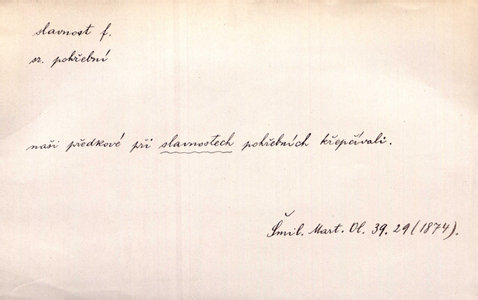 slavnost f.
sr. pohřební
naši předkové při slavnostech pohřebních křepčívali.
Šmil. Mart. Ol. 39. 29 (1874).